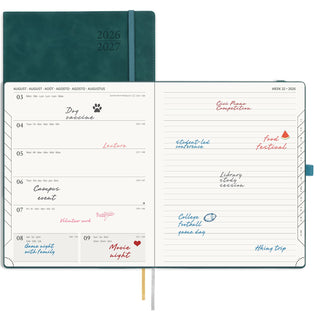 2026
2027
AUGUST · AUGUST · AOÛT · AGOSTO · AGOSTO · AUGUSTUS
WEEK 32 – 2026
03
Dog
vaccine
04
Lecture
05
06
Campus
event
07
Volunteer work
08
Game night
with family
09
Movie
night
Competition
student-led
conference
Food
Festival
Library
study
session
College
football
game day
Hiking trip